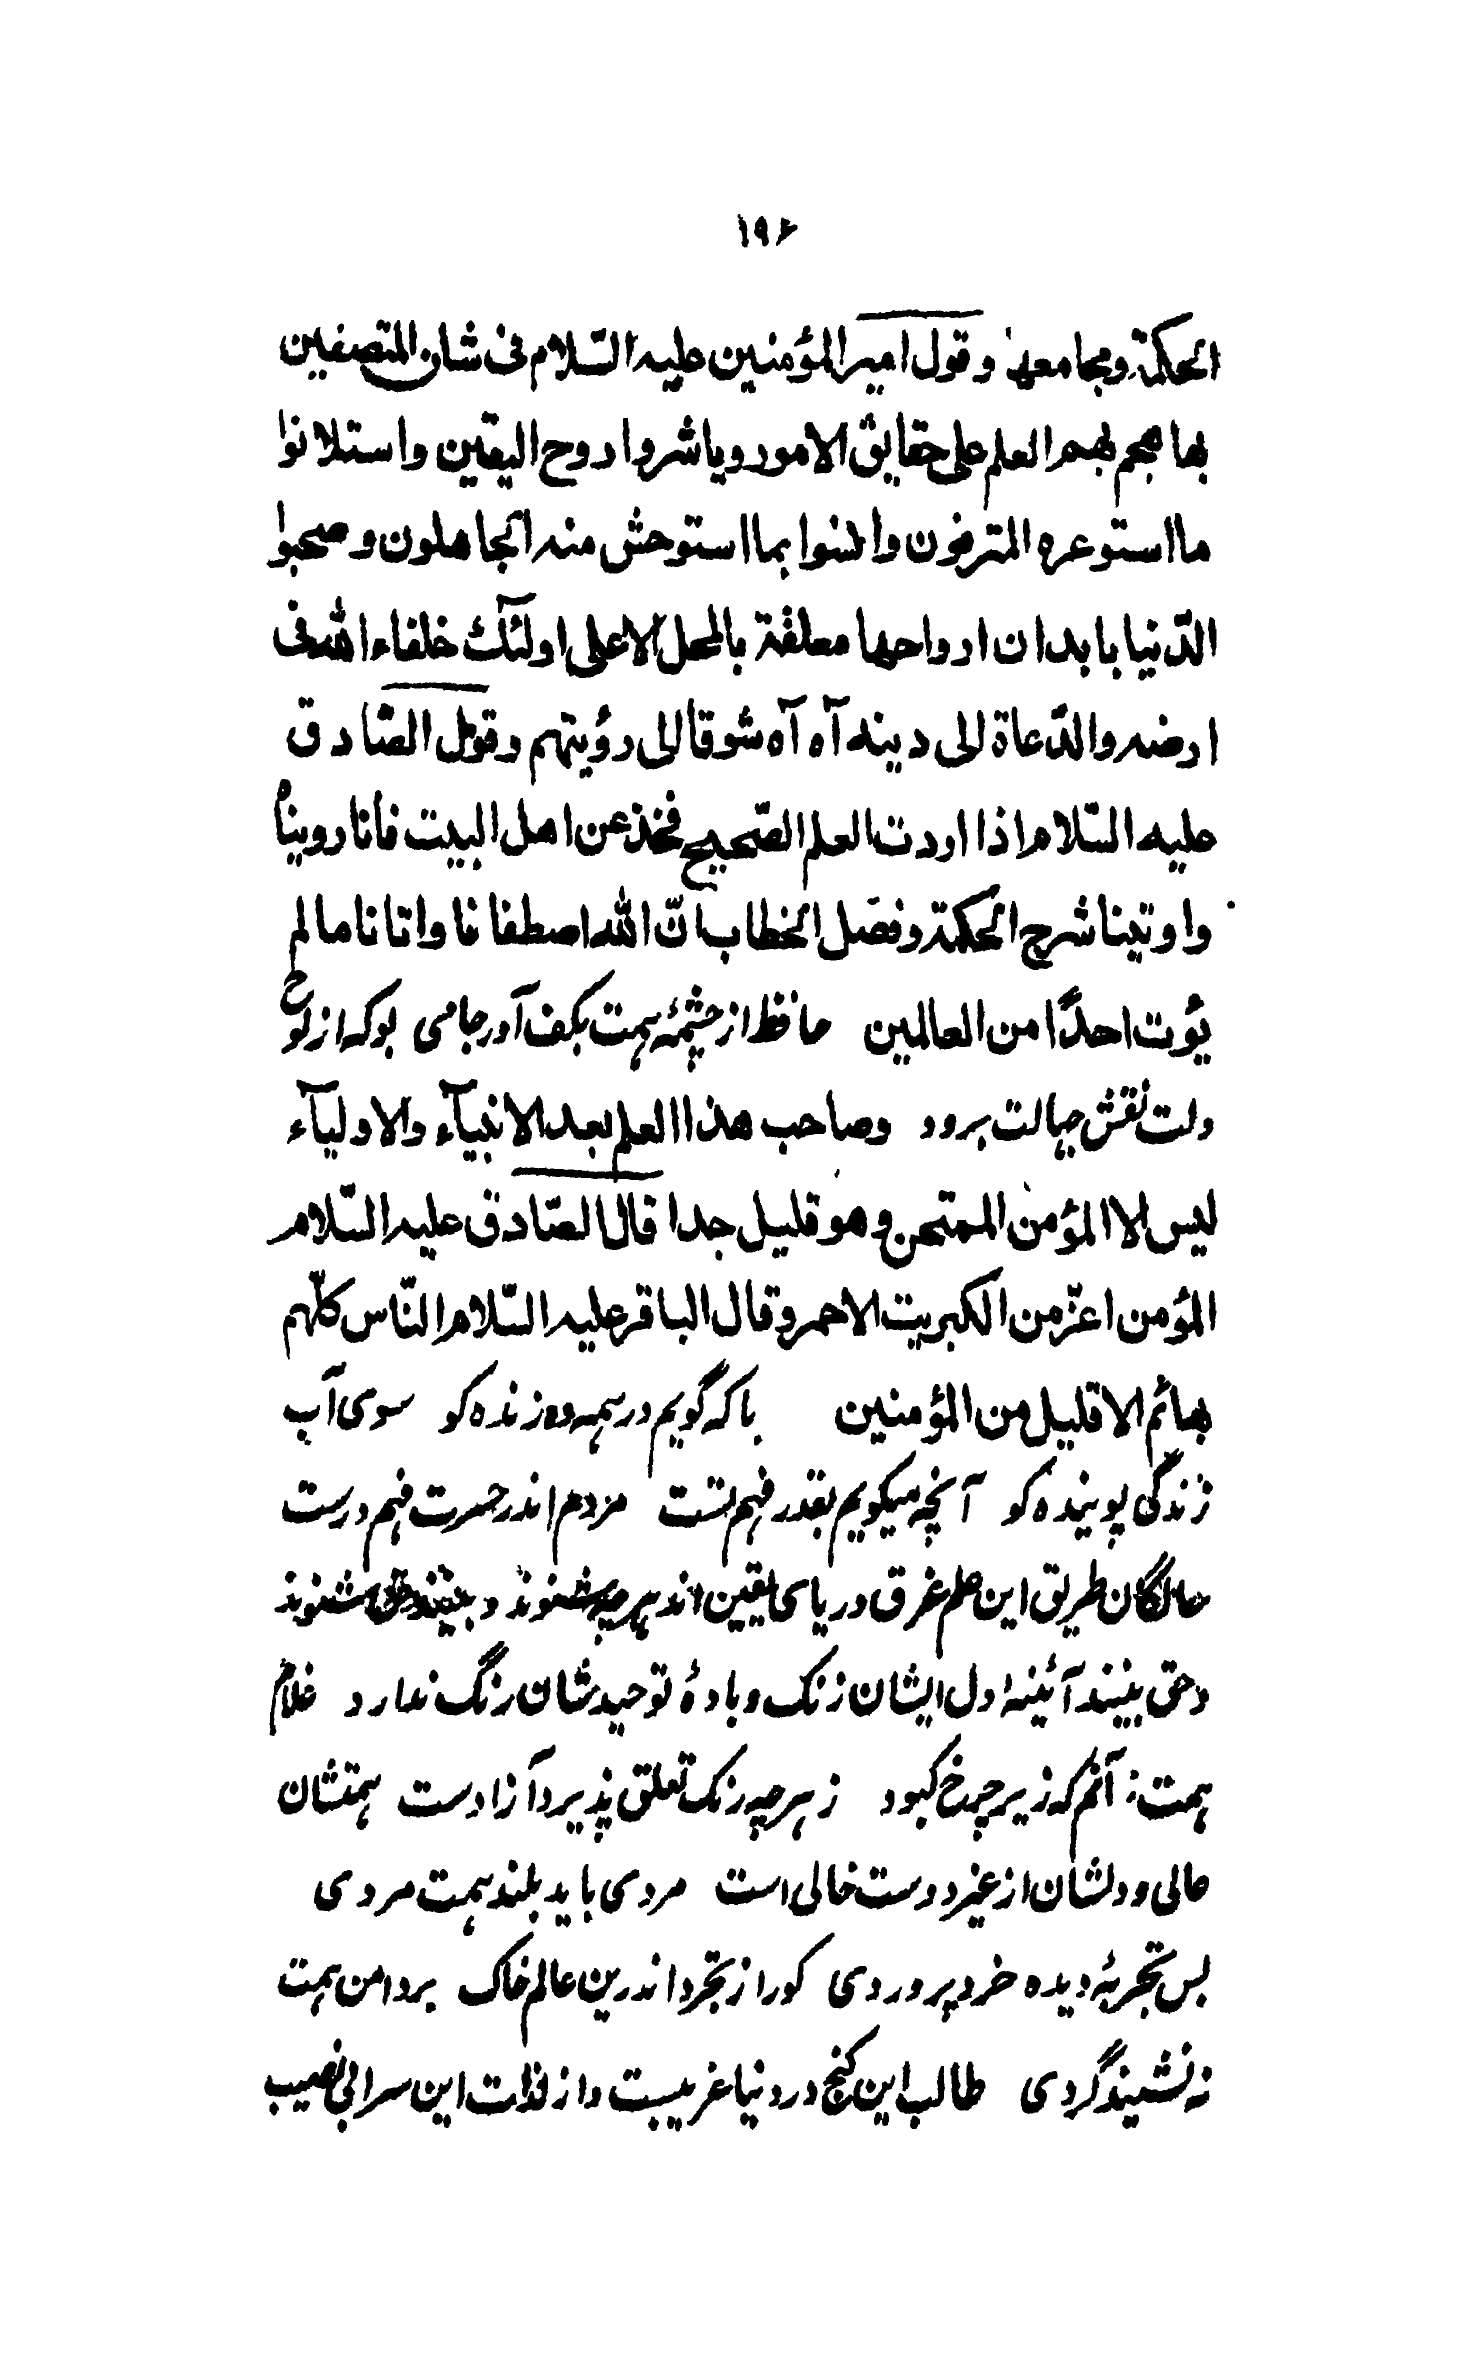 ۱۹۶
الحكمة ومجامعها وقول اميرالمؤمنين عليه السّلام فى شان المتصفين
بها هجم بهم العلم على حقايق الامور وباشروا روح اليقين واستلانوا
ما استوعره المترفون وانسوا بما استوحش منه الجاهلون وصحبوا
الدّنيا بابدان ارواحها معلقة بالمحل الاعلى اولئك خلفاء الله فى
ارضه والدّعاة الى دينه آه آه شوقا الى رؤيتهم وقول الصّادق
عليه السّلام اذا اردت العلم الصّحيح فخذ عن اهل البيت فأنا رويناه
واوتينا شرح الحكمة وفصل الخطاب انّ الله اصطفانا واتانا ما لم
يؤت احدًا من العالمين حافظ از چشمهٔ همت بكف آور جامى بو كه از لوح
دلت نقش جهالت برود وصاحب هذا العلم بعد الانبيآء والاوليآء
ليس الا المؤمن الممتحن وهو قليل جدا قال الصّادق عليه السّلام
المؤمن اعزّ من الكبريت الاحمر وقال الباقر عليه السّلام النّاس كلّهم
بهائم الا قليل من المؤمنين با كه گويم در همه ده زنده كو سوى آب
زندگى پوينده كو آنچه ميكويم بقدر فهم تست مردم اندر حسرت فهم درست
سالكان طريق اين علم غرق درياى يقين اند هرچه شنوند و بينند حق شنوند
و حق بينند آئينهٔ دل ايشان زنک و بادهٔ توحيد شان رنگ ندارد غلام
همت آنم كه زير چرخ كبود ز هر چه رنک تعلق پذيرد آزادست همتشان
عالى و دلشان از غير دوست خالى است مردى بايد بلند همت مردى
بس تجربهٔ ديده خرد پروردى كورا ز تجرد اندرين عالم خاک بر دامن همت
نه نشيند گردى طالب اين گنج در دنيا غريبست و از لذات اين سرا بى نصيب